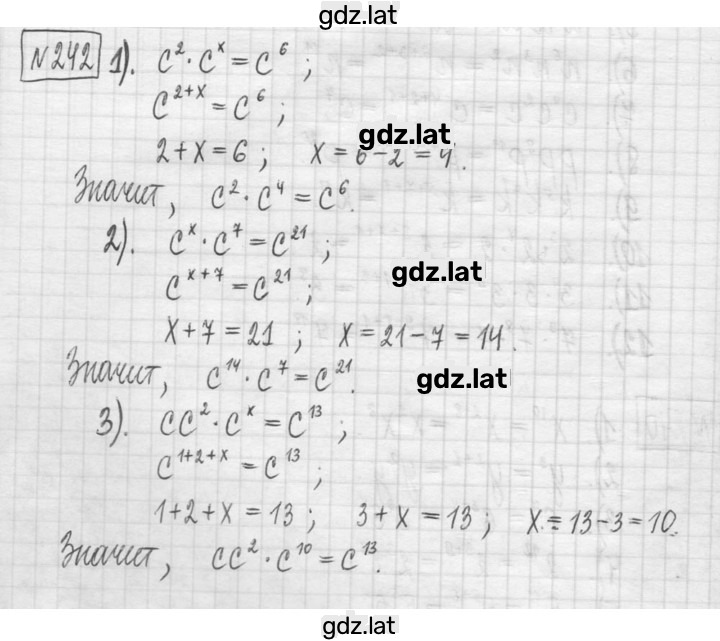 gdz.lat
№242 1). c² · cˣ = c⁶ ;
c²⁺ˣ = c⁶ ;
gdz.lat
2 + x = 6 ; x = 6 - 2 = 4.
Значит, c² · c⁴ = c⁶.
2). cˣ · c⁷ = c²¹ ;
gdz.lat
cˣ⁺⁷ = c²¹ ;
x + 7 = 21 ; x = 21 - 7 = 14.
Значит, c¹⁴ · c⁷ = c²¹.
gdz.lat
3). cc² · cˣ = c¹³ ;
c¹⁺²⁺ˣ = c¹³ ;
1 + 2 + x = 13 ; 3 + x = 13 ; x = 13 - 3 = 10.
Значит, cc² · c¹⁰ = c¹³.
gdz.lat